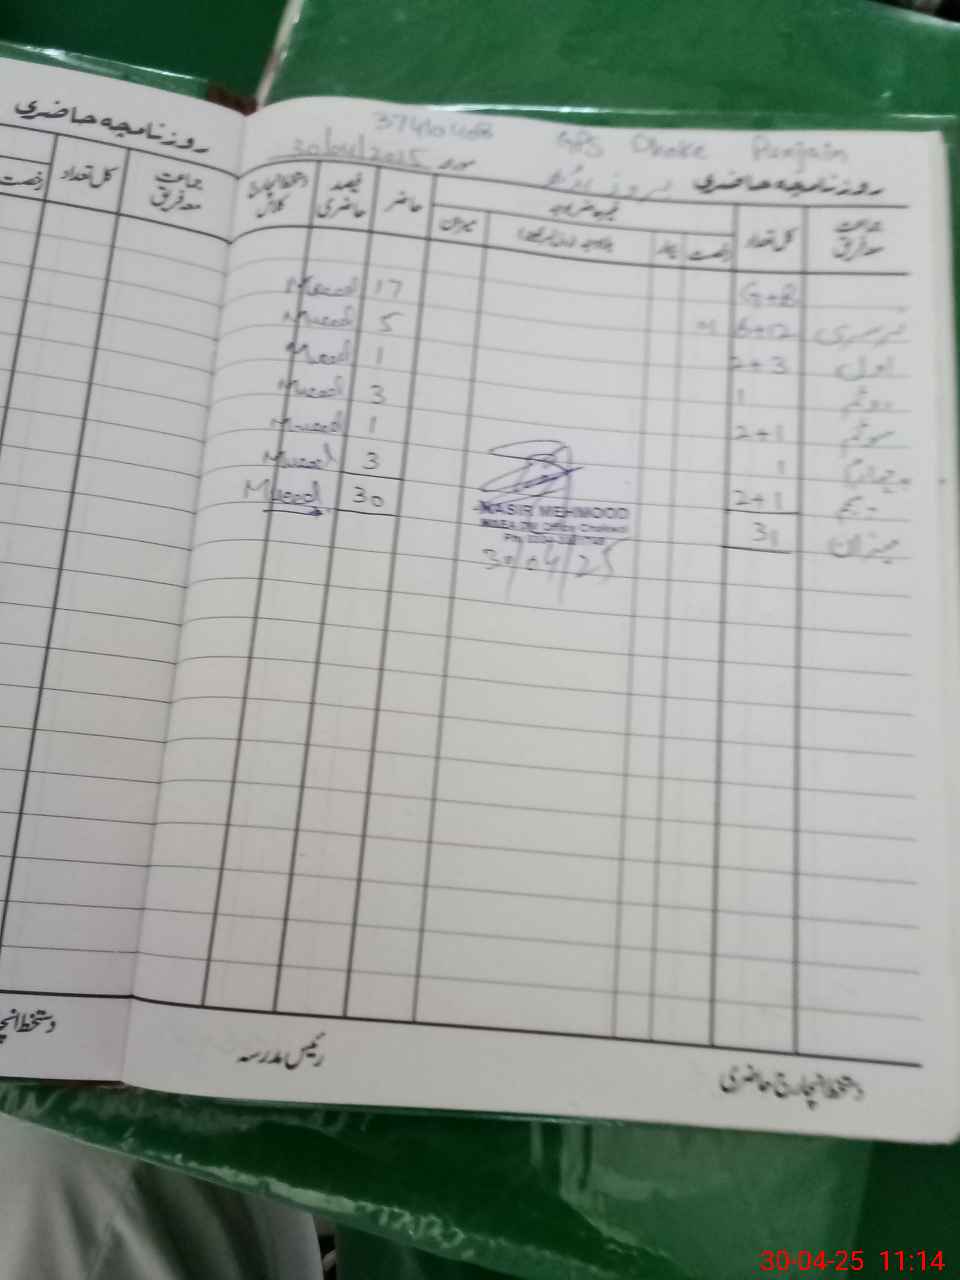 روزنامچہ حاضری
رخصت کل تعداد جماعت معہ فریق
GPS Dhoke Punjain
روزنامچہ حاضری بروز مورخہ 30/04/2025
جماعت معہ فریق کل تعداد غیر حاضر رخصت بیمار میزان حاضر فیصد حاضری دستخط انچارج کلاس
G+B 17 Mueed
نرسری 6+12 5 Mueed
اول 2+3 1 Mueed
دوئم 1 3 Mueed
سوئم 2+1 1 Mueed
چہارم 1 3 Mueed
پنجم 2+1 30 Mueed
میزان 31
NASIR MEHMOOD
30/04/25
دستخط انچارج حاضری رئیس مدرسہ
30-04-25 11:14